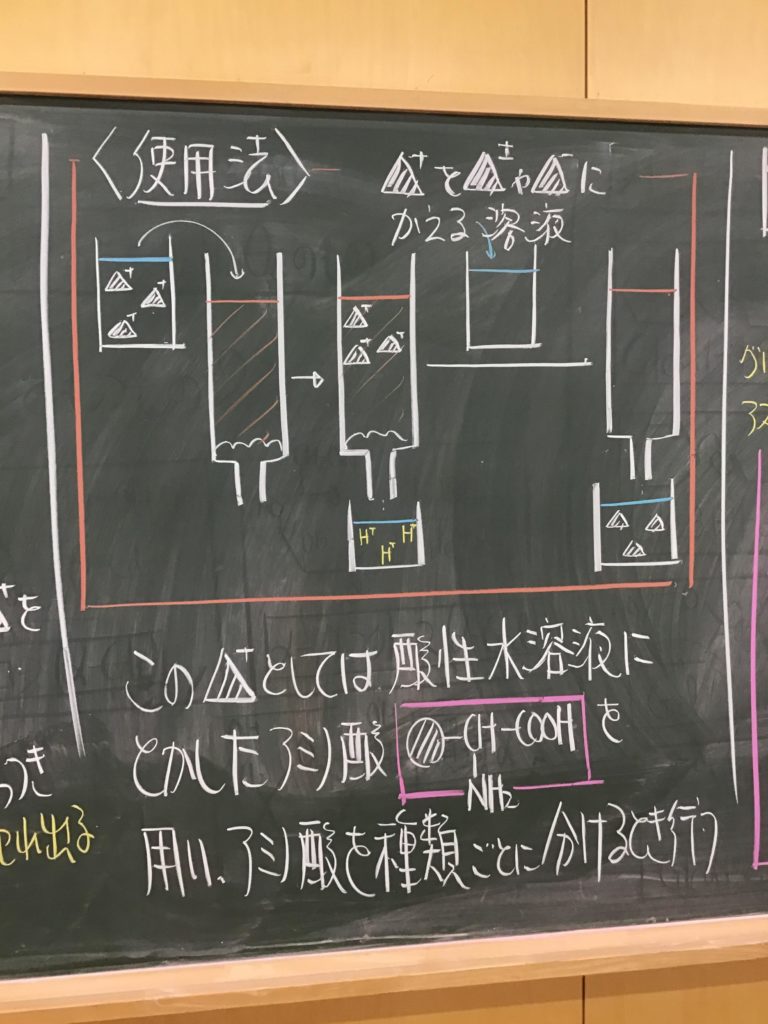 〈使用法〉
△⁺を△±や△⁻に
かえる溶液
+ + +
+ + +
H⁺ H⁺ H⁺
この△⁺としては酸性水溶液に
とかしたアミノ酸 -CH-COOH を
NH₂
用い、アミノ酸を種類ごとに分けるとき行う
を
つき
出る
グル
アス